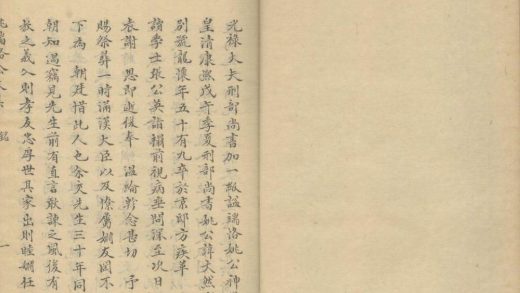 光祿大夫刑部尚書加一級諡端恪姚公神
皇清康熙戊午季夏刑部尚書姚公諱文然
別號龍懷年五十有九卒於京邸方疾革
諭學士張公英詣榻前視病垂問深至次日
表謝 恩即逝復奉 溫綸軫念甚切 予
賜祭葬一時滿漢大臣以及僚屬姻友罔不
下為 朝廷惜此人也余交先生三十年同
朝知遇竊見先生前有直言敢諫之風後有
救之義入則孝友忠厚世其家出則睦婣任
姚端恪公 銘 一